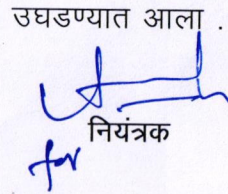 उघडण्यात आला .
नियंत्रक
for